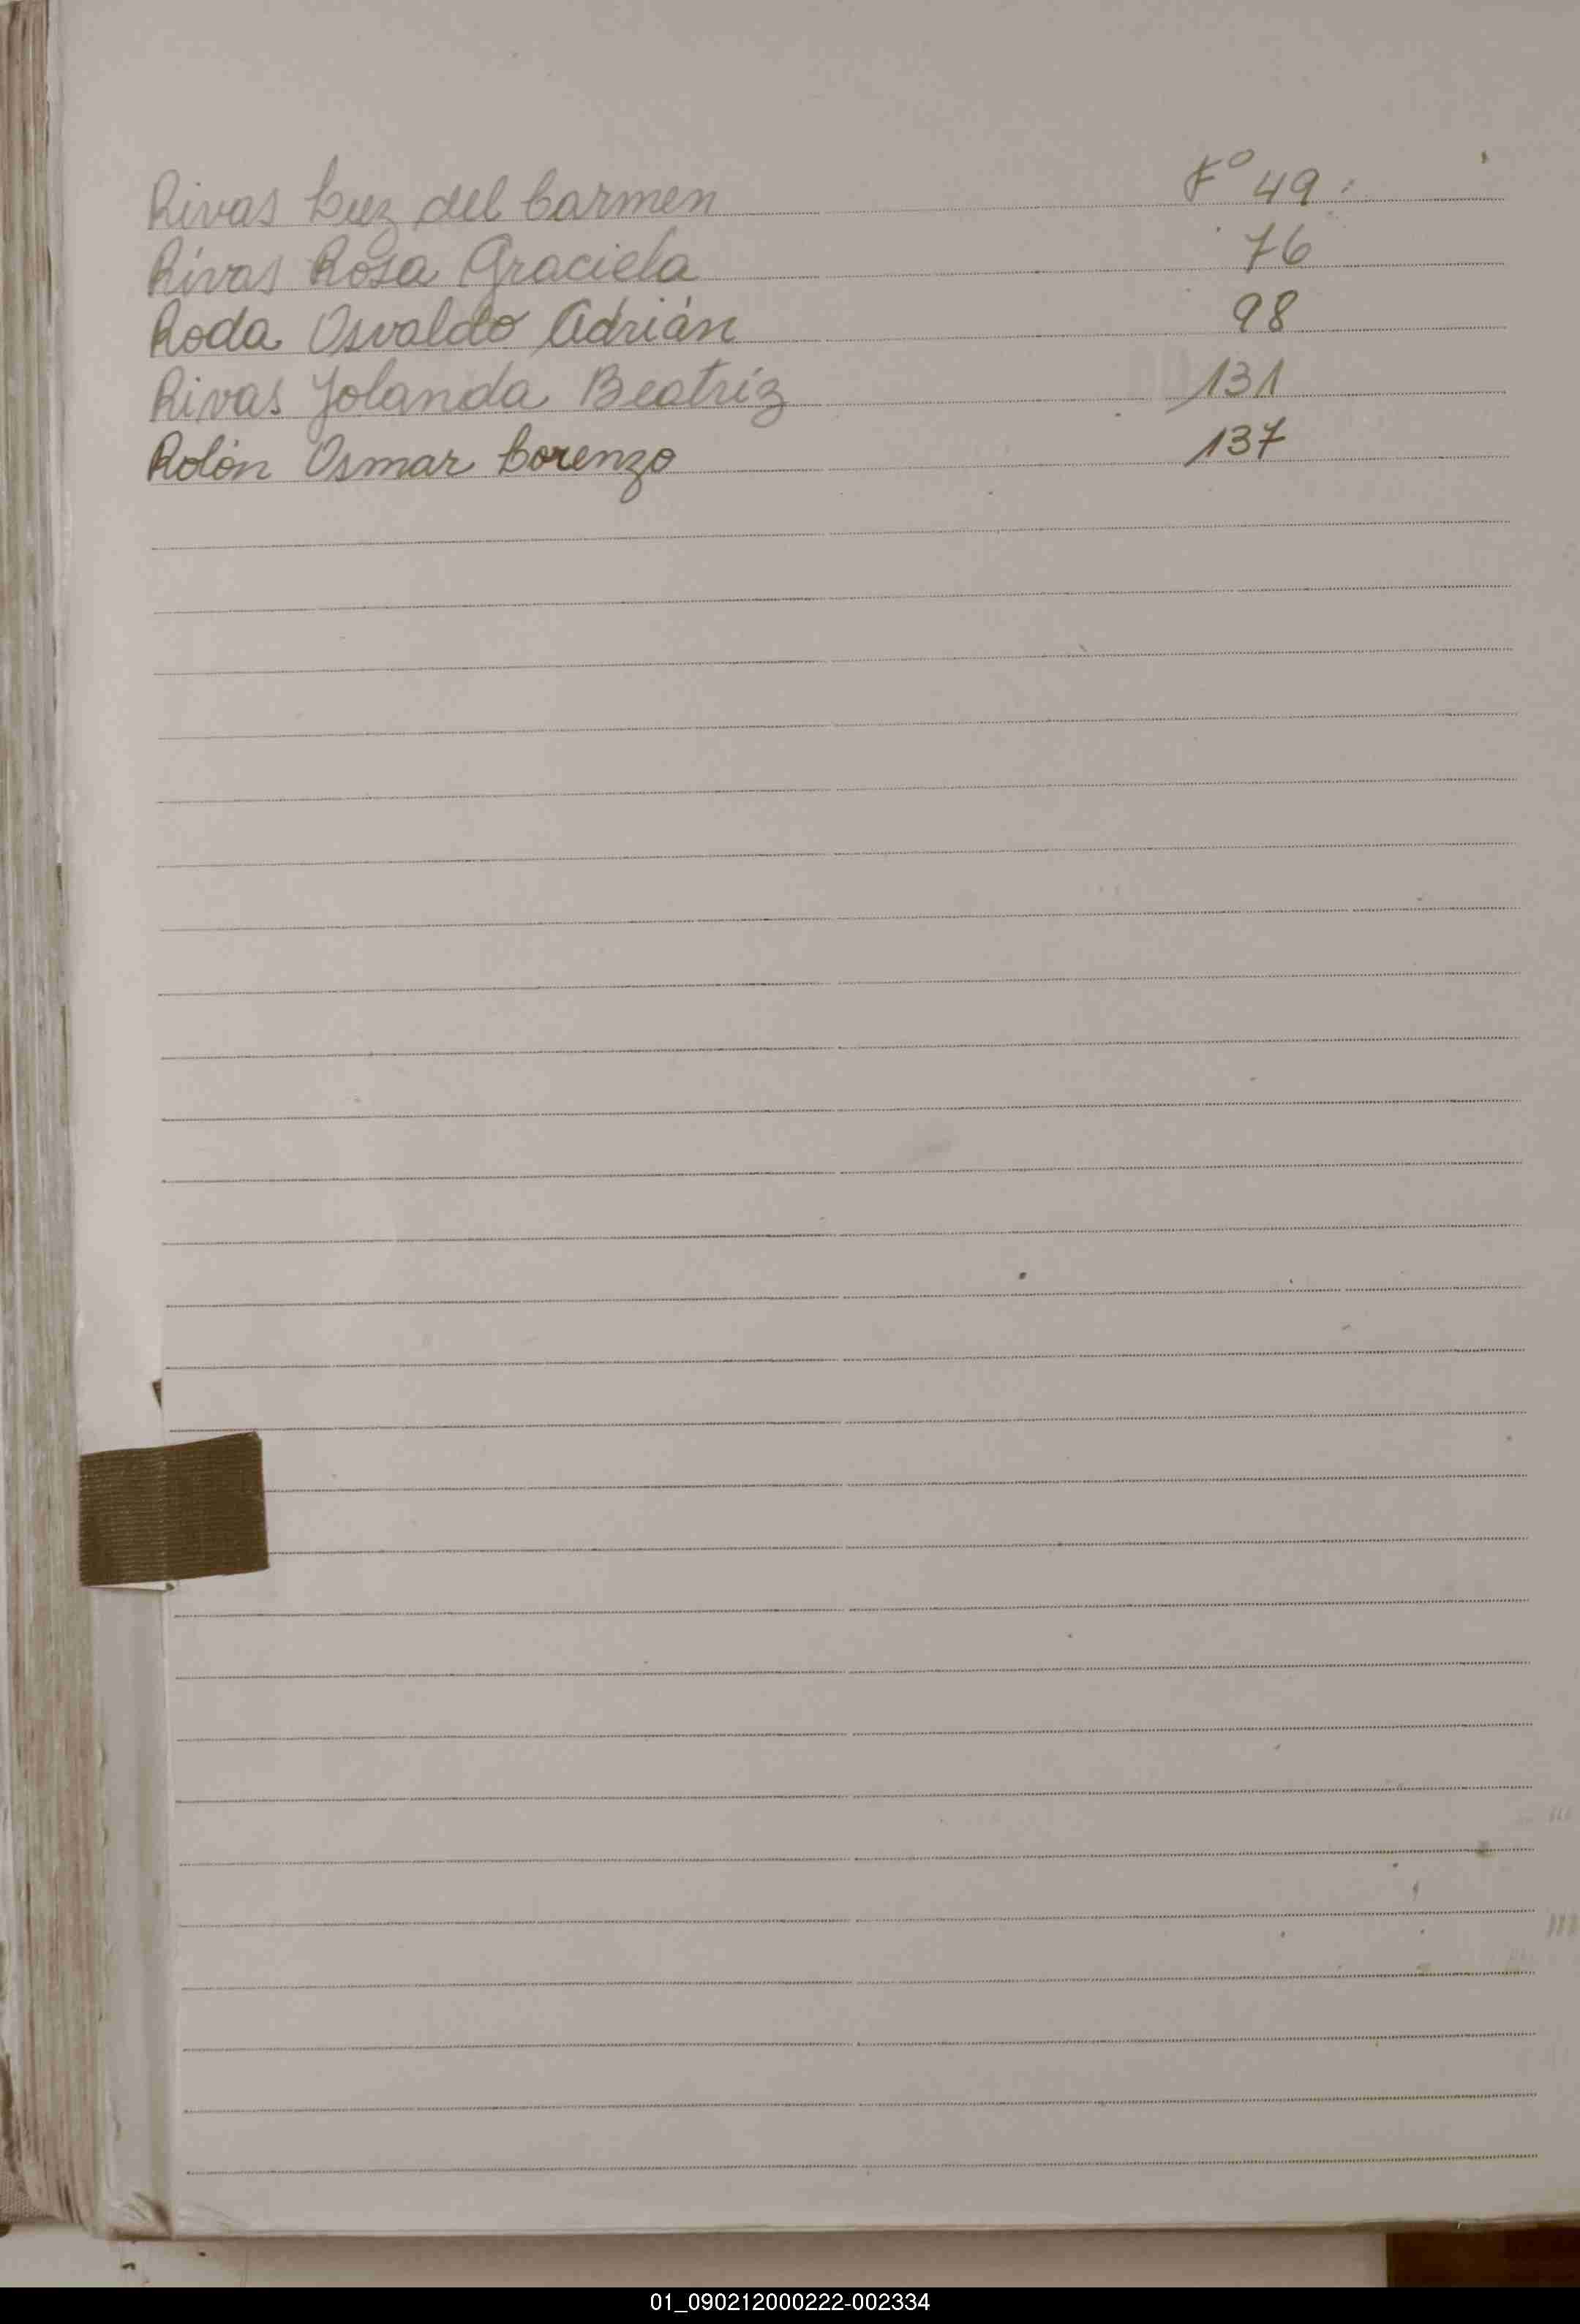 Rivas Luz del Carmen F° 49
Rivas Rosa Graciela 76
Roda Osvaldo Adrián 98
Rivas Yolanda Beatríz 131
Rolón Osmar Lorenzo 137
01_090212000222-002334